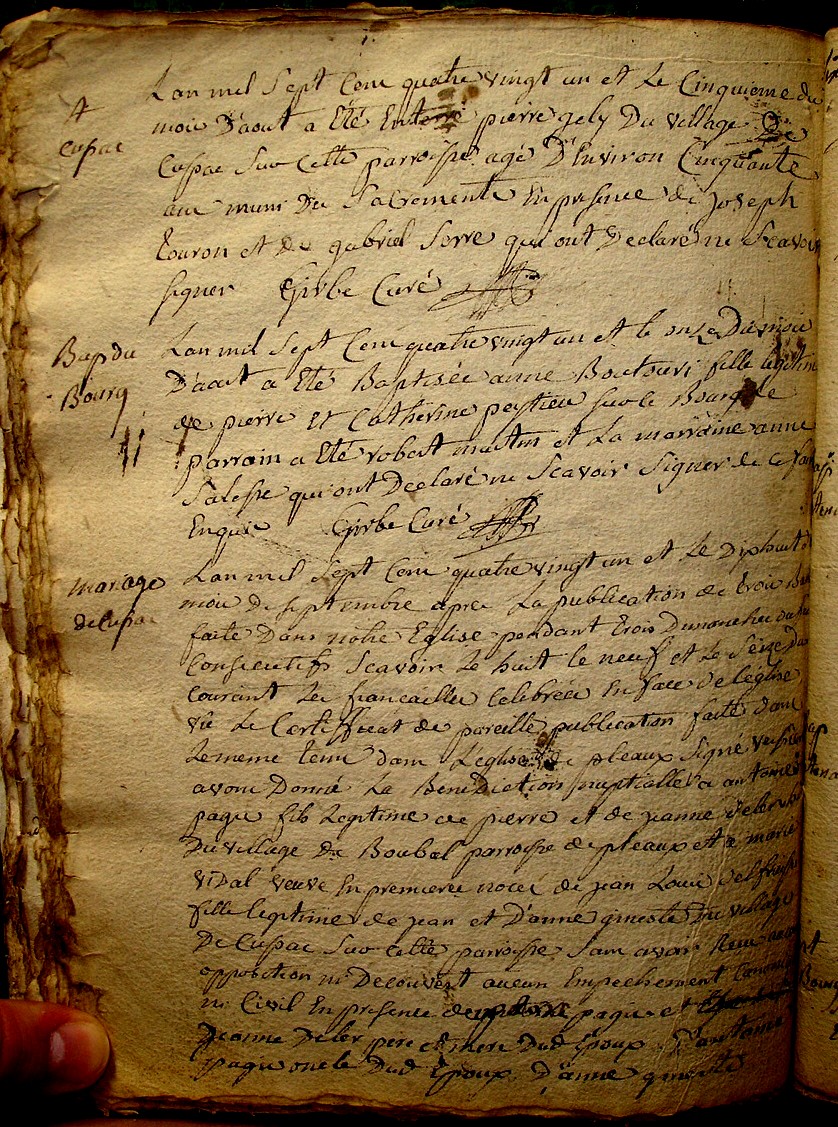 +
Cussac
Lan mil Sept Cent quatre vingt un et Le Cinquieme du
mois D'aout a Eté Enterré pierre gely Du village De
Cussac Sur Cette parroisse agé D'Environ Cinquante
ans muni Des Sacrements En presence de joseph
touron et De gabriel Serre qui ont Declaré ne Scavoir
signer Girbe Curé
Bap du
Bourg
Lan mil Sept Cent quatre vingt un et le onze Du mois
D'aout a Eté Baptisée anne fille legitime
de pierre Et Catherine sur le Bourg Le
parrain a Eté robert martin et La marraine anne
qui ont Declaré ne Scavoir Signer de ce
Enquis Girbe Curé
mariage
de Cussac
Lan mil Sept Cent quatre vingt un et Le Dix huit du
mois De septembre apres La publication de trois
faite Dans notre Eglise pendant trois Dimanches ou
Consecutifs Scavoir Le huit le neuf et Le Seize du
Courant Les fiancailles Celebrées En face de leglise
vû Le Certifficat de pareille publication faite dans
Le meme tems dans L'eglise de pleaux Signé
avons Donné La Benediction nuptialle a antoine
pagis fils Legitime de pierre et de jeanne
Du village De Boubal parroisse de pleaux et a marie
vidal veuve En premieres noces de jean Louis
fille legitime de jean et D'anne gineste Du village
De Cussac Sur Cette parroisse Sans avoir Reçu
opposition ni Decouvert aucun Empechement Canonique
ni Civil En presence de pagis et
jeanne Deler pere et mere Dud Epoux D'antoine
pagis oncle Dud Epoux D'anne gineste